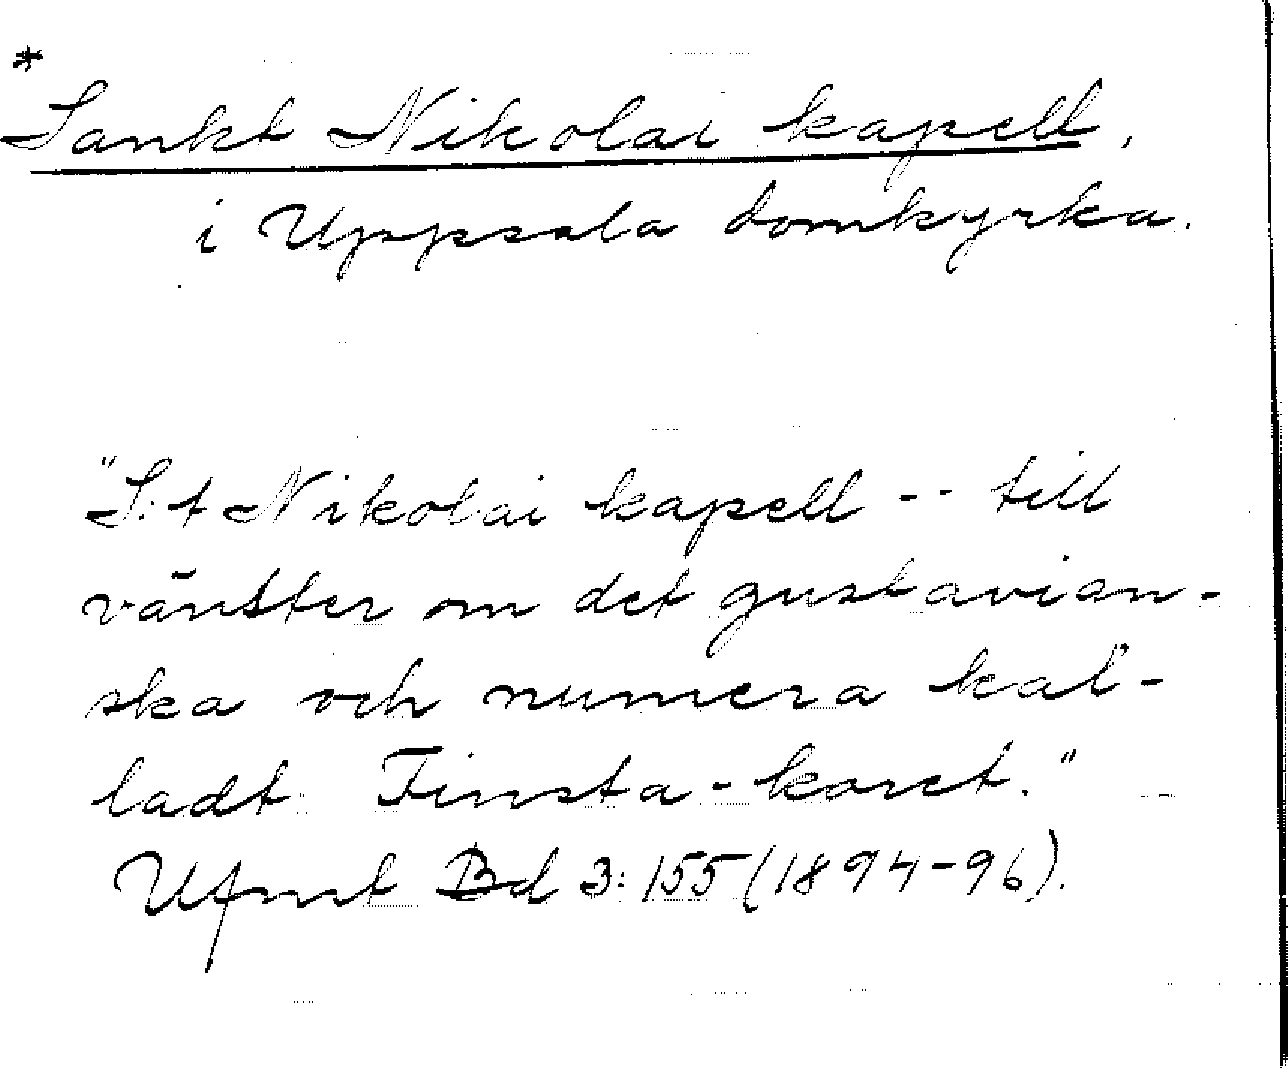 *
Sankt Nikolai kapell,
i Uppsala domkyrka.
"S:t Nikolai kapell -- till
vänster om det gustavian-
ska och numera kal-
ladt Finsta-koret."
Ufmt Bd 3:155 (1894-96).